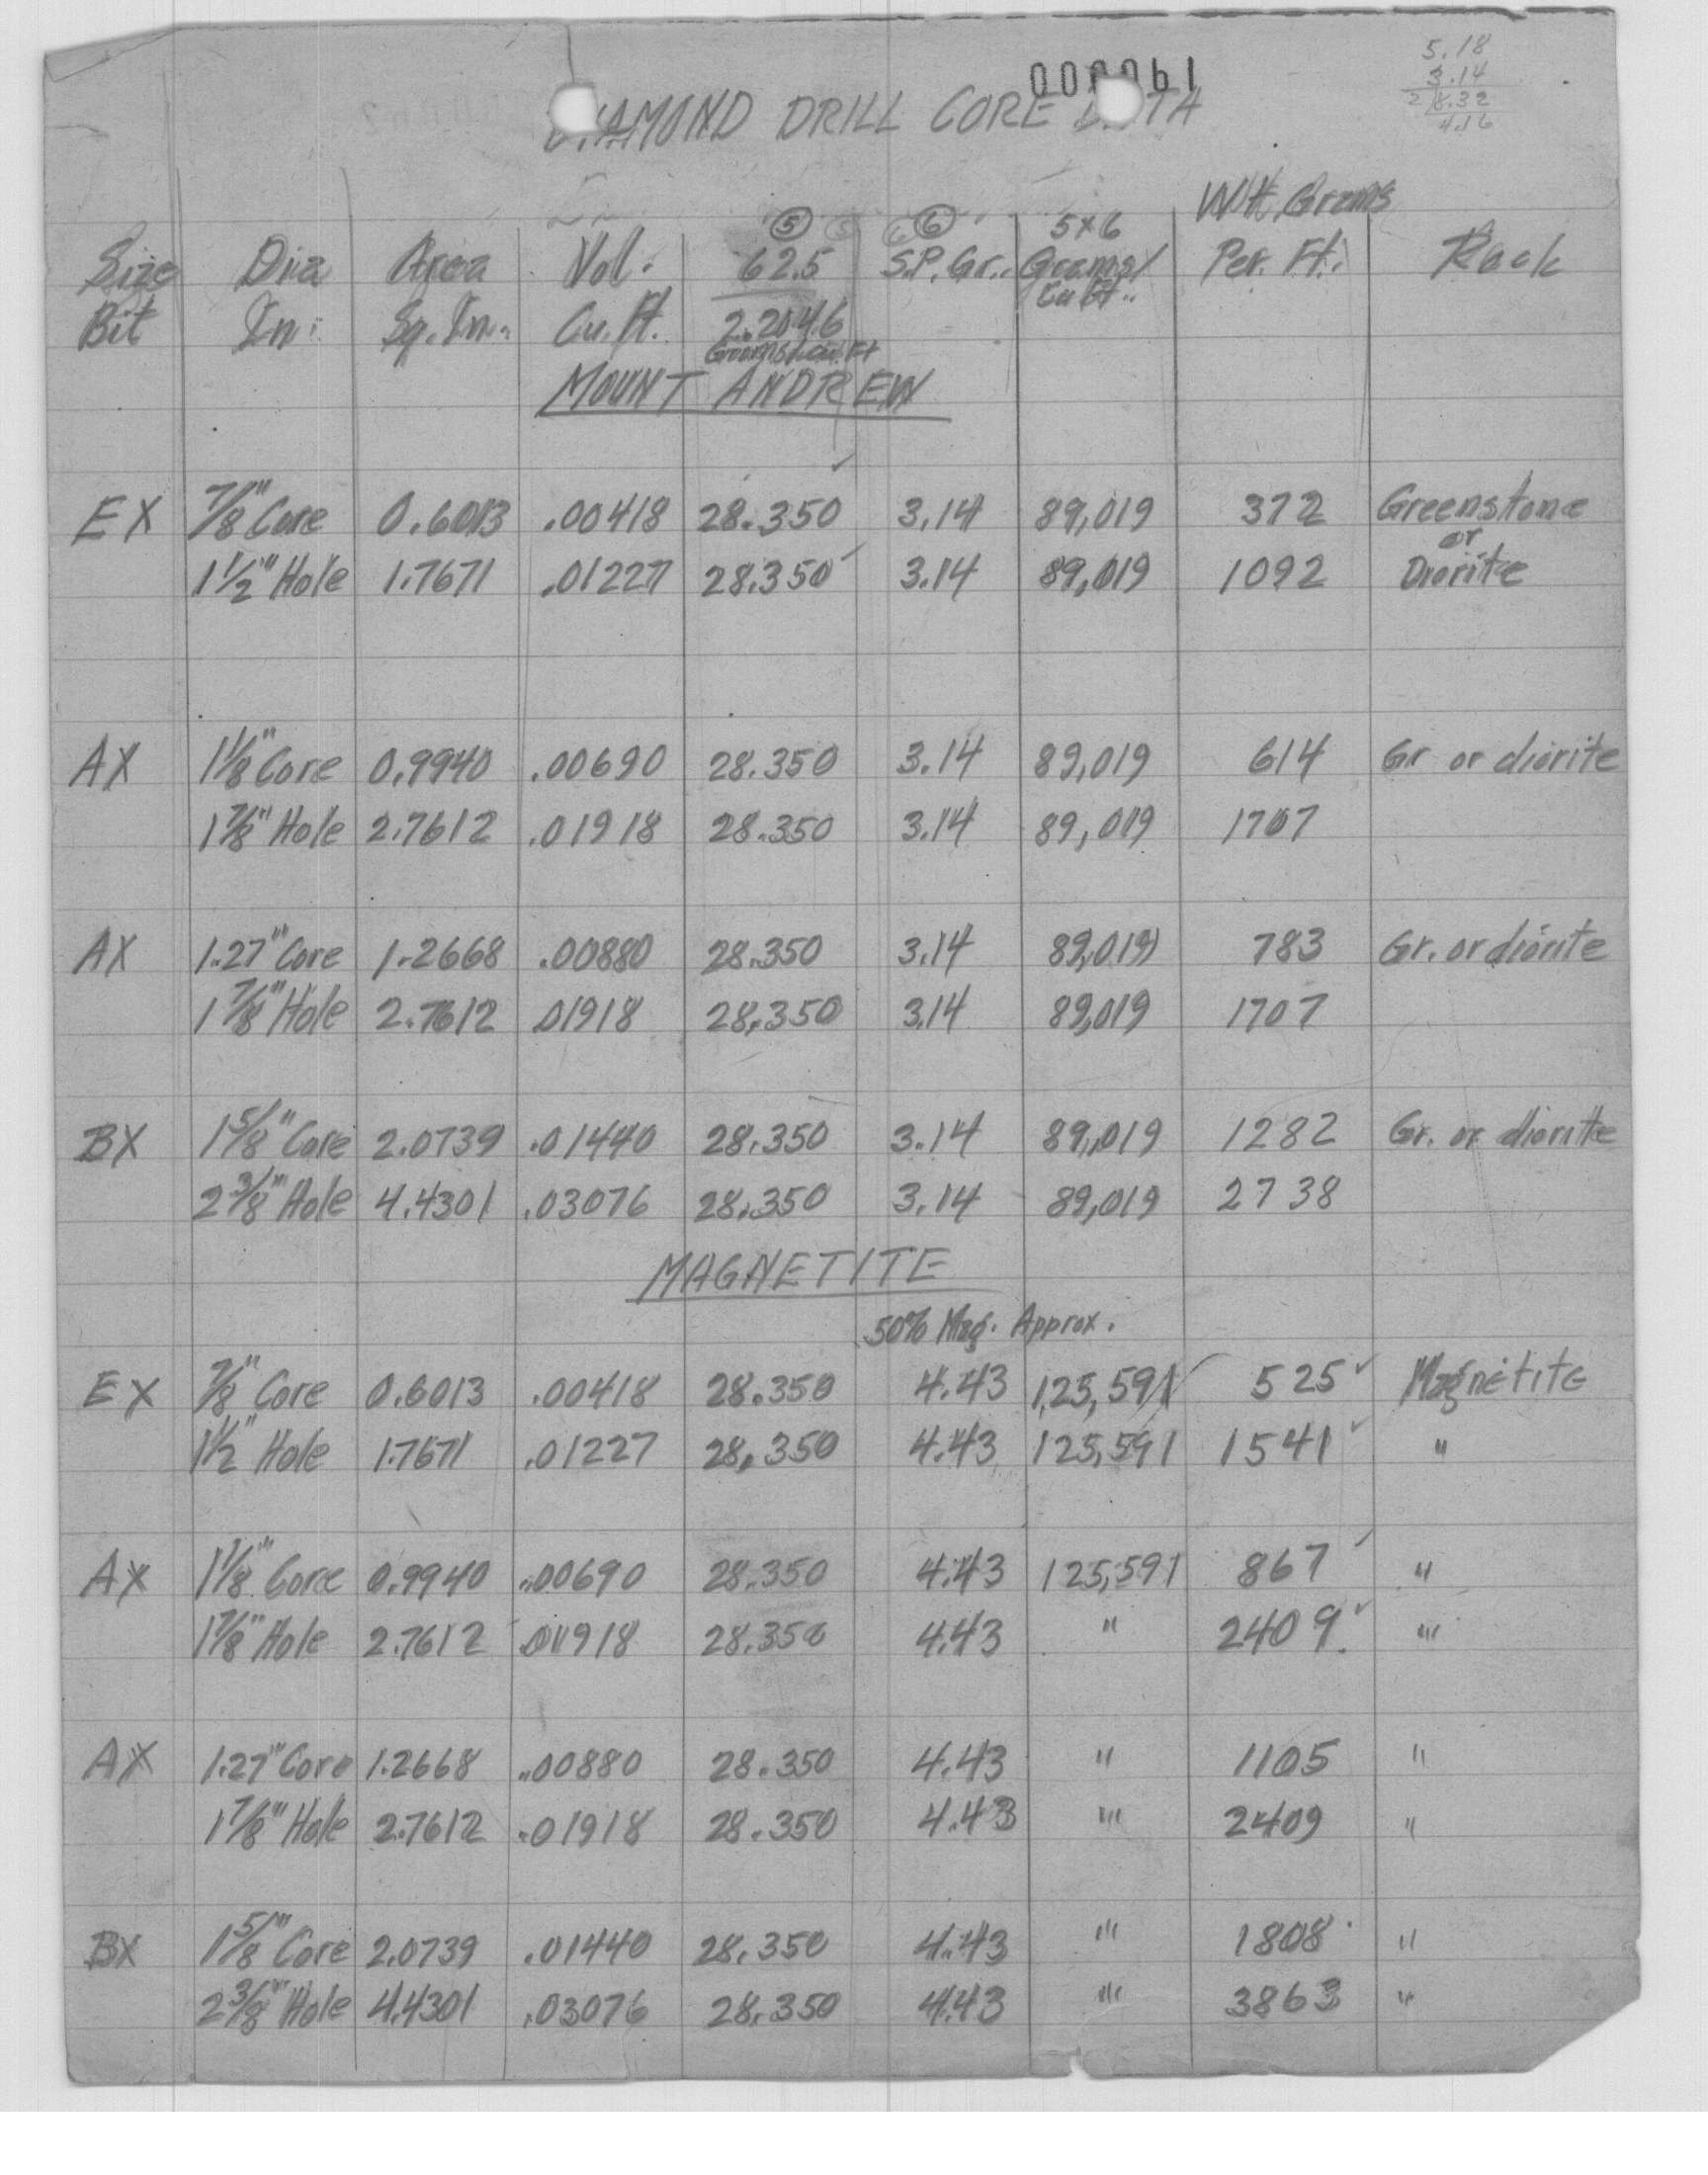 000061
5.18
3.14
2 8.32
4.16
DIAMOND DRILL CORE DATA
Wt. Grams
⑤ ⑥ 5x6
Size Dia Area Vol. 62.5 S.P. Gr. Grams/ Per. Ft. Rock
Bit In. Sq. In. Cu. Ft. 2.2046 Cu Ft.
Grams/cu. Ft
MOUNT ANDREW
EX 7/8" Core 0.6013 .00418 28.350 3.14 89,019 372 Greenstone
or
1 1/2" Hole 1.7671 .01227 28.350 3.14 89,019 1092 Diorite
AX 1 1/8" Core 0.9940 .00690 28.350 3.14 89,019 614 Gr or diorite
1 7/8" Hole 2.7612 .01918 28.350 3.14 89,019 1707
AX 1.27" Core 1.2668 .00880 28.350 3.14 89,019 783 Gr. or diorite
1 7/8" Hole 2.7612 .01918 28,350 3.14 89,019 1707
BX 1 5/8" Core 2.0739 .01440 28.350 3.14 89,019 1282 Gr. or diorite
2 3/8" Hole 4.4301 .03076 28.350 3.14 89,019 2738
MAGNETITE
50% Mag. Approx.
EX 7/8" Core 0.6013 .00418 28.350 4.43 125,591 525 Magnetite
1 1/2" Hole 1.7671 .01227 28,350 4.43 125,591 1541 "
AX 1 1/8" Core 0.9940 .00690 28.350 4.43 125,591 867 "
1 7/8" Hole 2.7612 .01918 28.350 4.43 " 2409 "
AX 1.27" Core 1.2668 .00880 28.350 4.43 " 1105 "
1 7/8" Hole 2.7612 .01918 28.350 4.43 " 2409 "
BX 1 5/8" Core 2.0739 .01440 28.350 4.43 " 1808 "
2 3/8" Hole 4.4301 .03076 28.350 4.43 " 3863 "